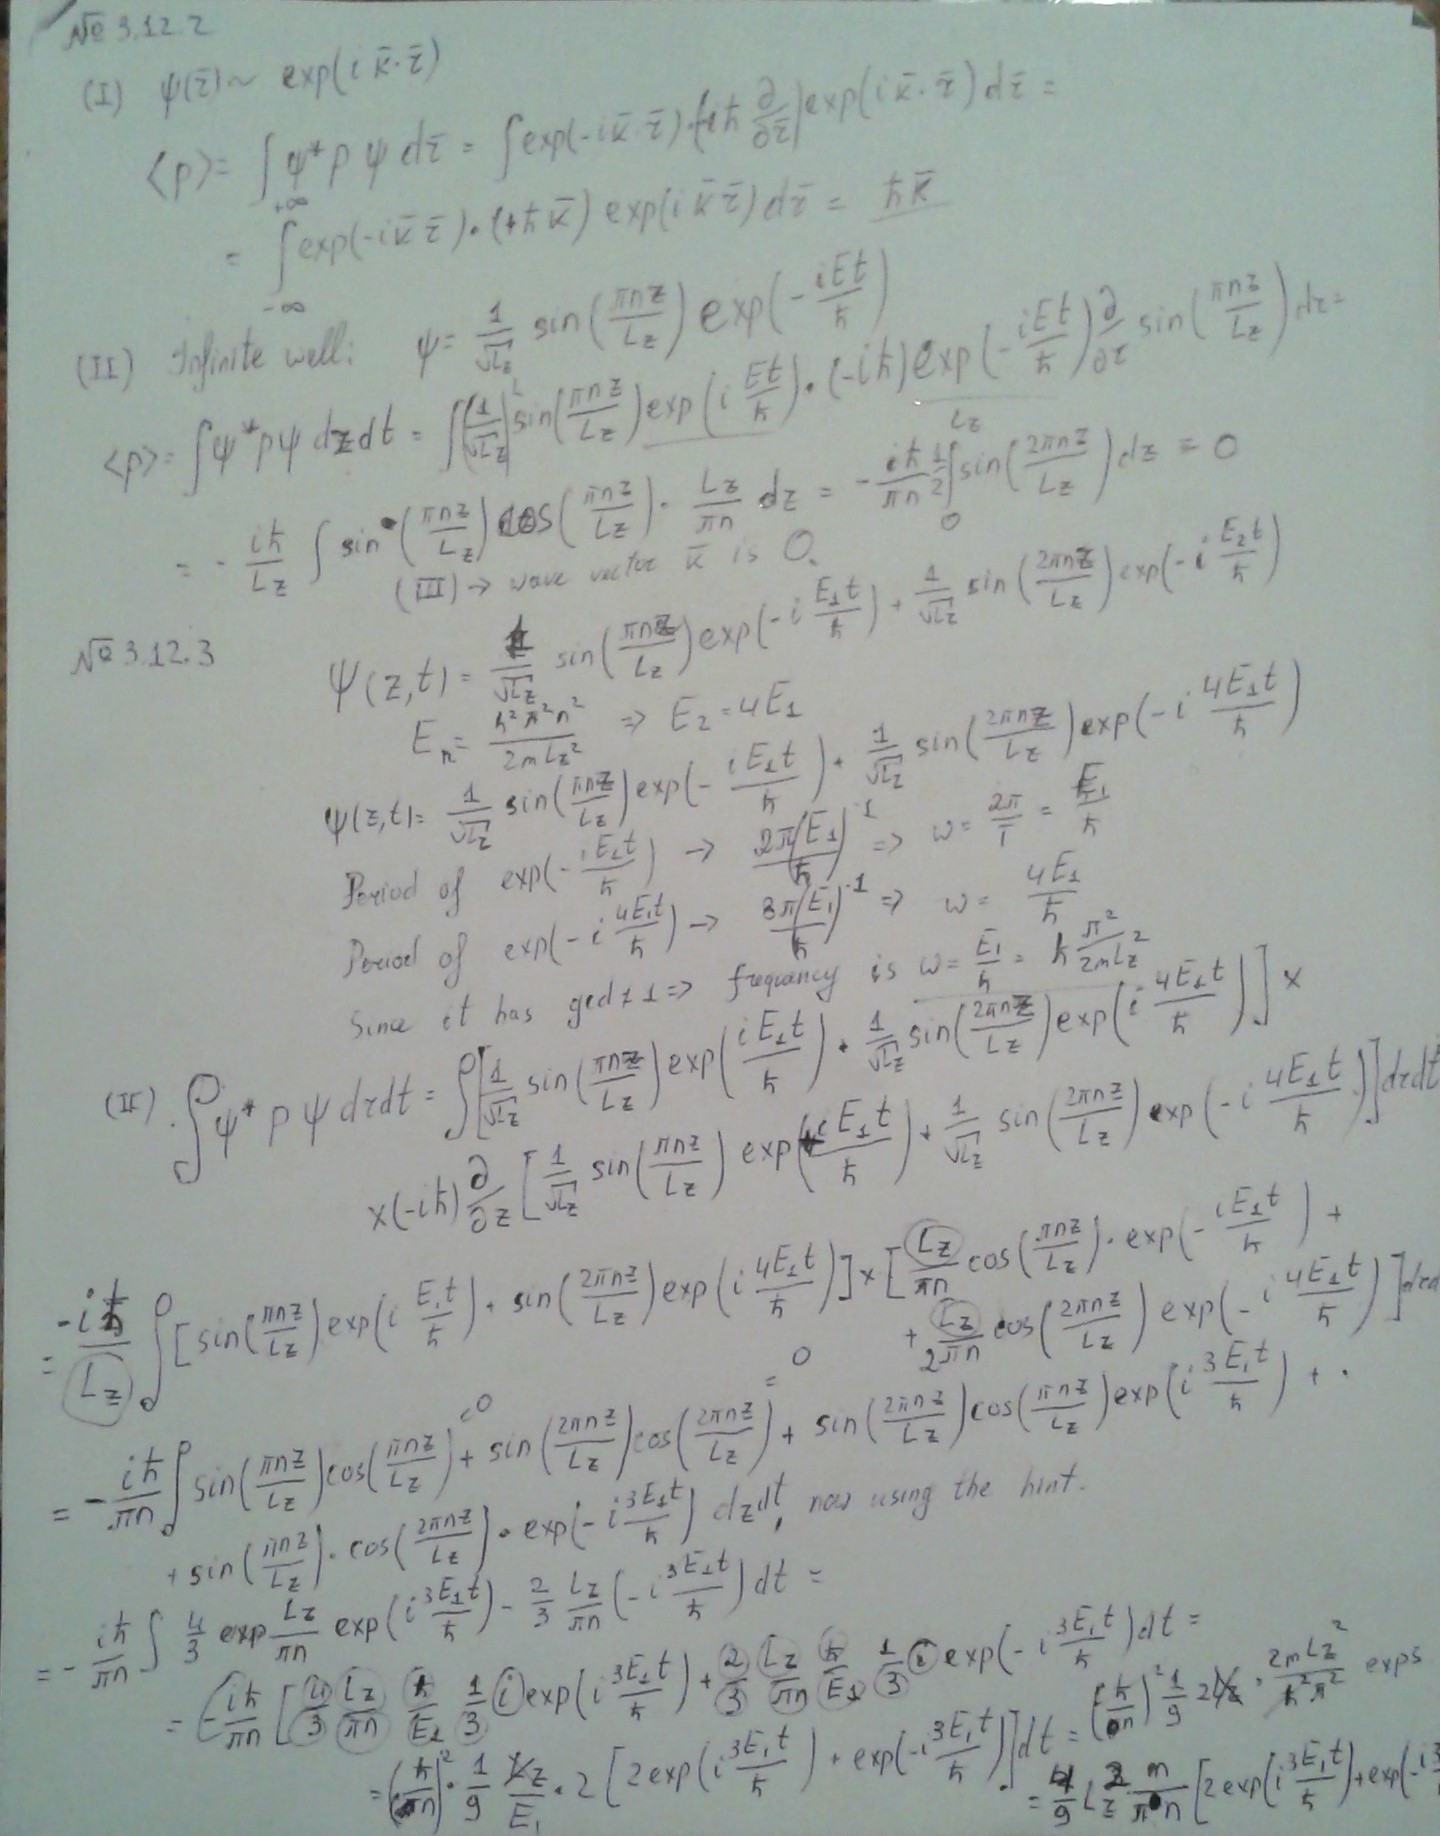 № 3.12.2
(I) ψ(r̄) ~ exp(i k̄·r̄)
<p> = ∫ ψ* p ψ dr̄ = ∫ exp(-i k̄·r̄)·(-iħ ∂/∂r̄) exp(i k̄·r̄) dr̄ =
= ∫_{-∞}^{+∞} exp(-i k̄ r̄)·(+ħ k̄) exp(i k̄ r̄) dr̄ = ħk̄
(II) Infinite well: ψ = 1/√Lz sin(πnz/Lz) exp(-iEt/ħ)
<p> = ∫ψ* p ψ dz dt = ∫(1/√Lz)² sin(πnz/Lz) exp(i Et/ħ)·(-iħ) exp(-iEt/ħ) ∂/∂z sin(πnz/Lz) dz =
= - iħ/Lz ∫ sin(πnz/Lz) cos(πnz/Lz)· Lz/πn dz = - iħ/πn 1/2 ∫_0^{Lz} sin(2πnz/Lz) dz = 0
(III) → wave vector k̄ is 0.
№ 3.12.3
ψ(z,t) = 1/√Lz sin(πnz/Lz) exp(-i E1t/ħ) + 1/√Lz sin(2πnz/Lz) exp(-i E2t/ħ)
En = ħ²π²n²/2mLz² => E2 = 4E1
ψ(z,t) = 1/√Lz sin(πnz/Lz) exp(-iE1t/ħ) + 1/√Lz sin(2πnz/Lz) exp(-i 4E1t/ħ)
Period of exp(-iE1t/ħ) → 2π(E1/ħ)^-1 => ω = 2π/T = E1/ħ
Period of exp(-i 4E1t/ħ) → 8π(E1/ħ)^-1 => ω = 4E1/ħ
Since it has gcd ≠ 1 => frequancy is ω = E1/ħ = ħ π²/2mLz²
(II) . ∫ψ* p ψ dz dt = ∫[1/√Lz sin(πnz/Lz) exp(iE1t/ħ) + 1/√Lz sin(2πnz/Lz) exp(i 4E1t/ħ)] ×
×(-iħ) ∂/∂z [1/√Lz sin(πnz/Lz) exp(-iE1t/ħ) + 1/√Lz sin(2πnz/Lz) exp(-i 4E1t/ħ)] dz dt
= -iħ/Lz ∫ [sin(πnz/Lz) exp(i E1t/ħ) + sin(2πnz/Lz) exp(i 4E1t/ħ)] × [Lz/πn cos(πnz/Lz)· exp(-iE1t/ħ) +
+ Lz/2πn cos(2πnz/Lz) exp(-i 4E1t/ħ)]
= - iħ/πn ∫ sin(πnz/Lz) cos(πnz/Lz) + sin(2πnz/Lz) cos(2πnz/Lz) + sin(2πnz/Lz) cos(πnz/Lz) exp(i 3E1t/ħ) + ·
=0
=0
+ sin(πnz/Lz)· cos(2πnz/Lz)· exp(-i 3E1t/ħ) dz dt, now using the hint.
= - iħ/πn ∫ 4/3 Lz/πn exp(i 3E1t/ħ) - 2/3 Lz/πn (-i 3E1t/ħ) dt =
= - iħ/πn [4/3 Lz/πn ħ/E1 1/3 i exp(i 3E1t/ħ) + 2/3 Lz/πn ħ/E1 1/3 i exp(-i 3E1t/ħ) dt =
= (ħ/πn)²· 1/9 Lz/E1 · 2 [2exp(i 3E1t/ħ) + exp(-i 3E1t/ħ)] dt = (ħ/πn)² 1/9 2Lz · 2mLz²/ħ²π² exps
= 4/9 Lz m/πn [2exp(i 3E1t/ħ) + exp(-i